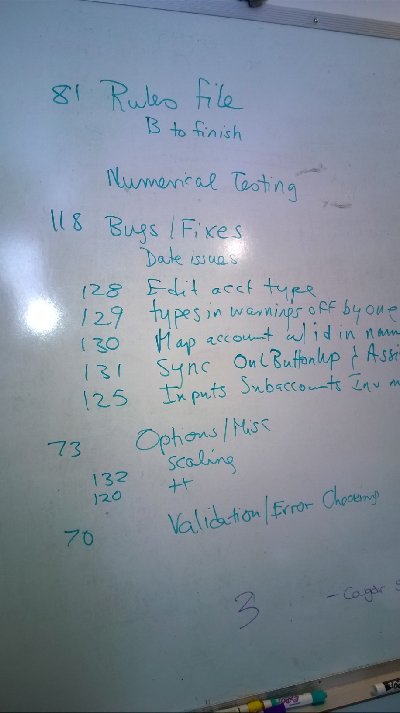 81 Rules file
B to finish
Numerical Testing
118 Bugs/Fixes
Date issues
128 Edit acct type
129 types in warnings off by one
130 Map account w/ id in
131 Sync OnLButtonUp &
125 Inputs Subaccounts Inv
73 Options/Misc
scaling
132
120
70 Validation/Error Checking
3